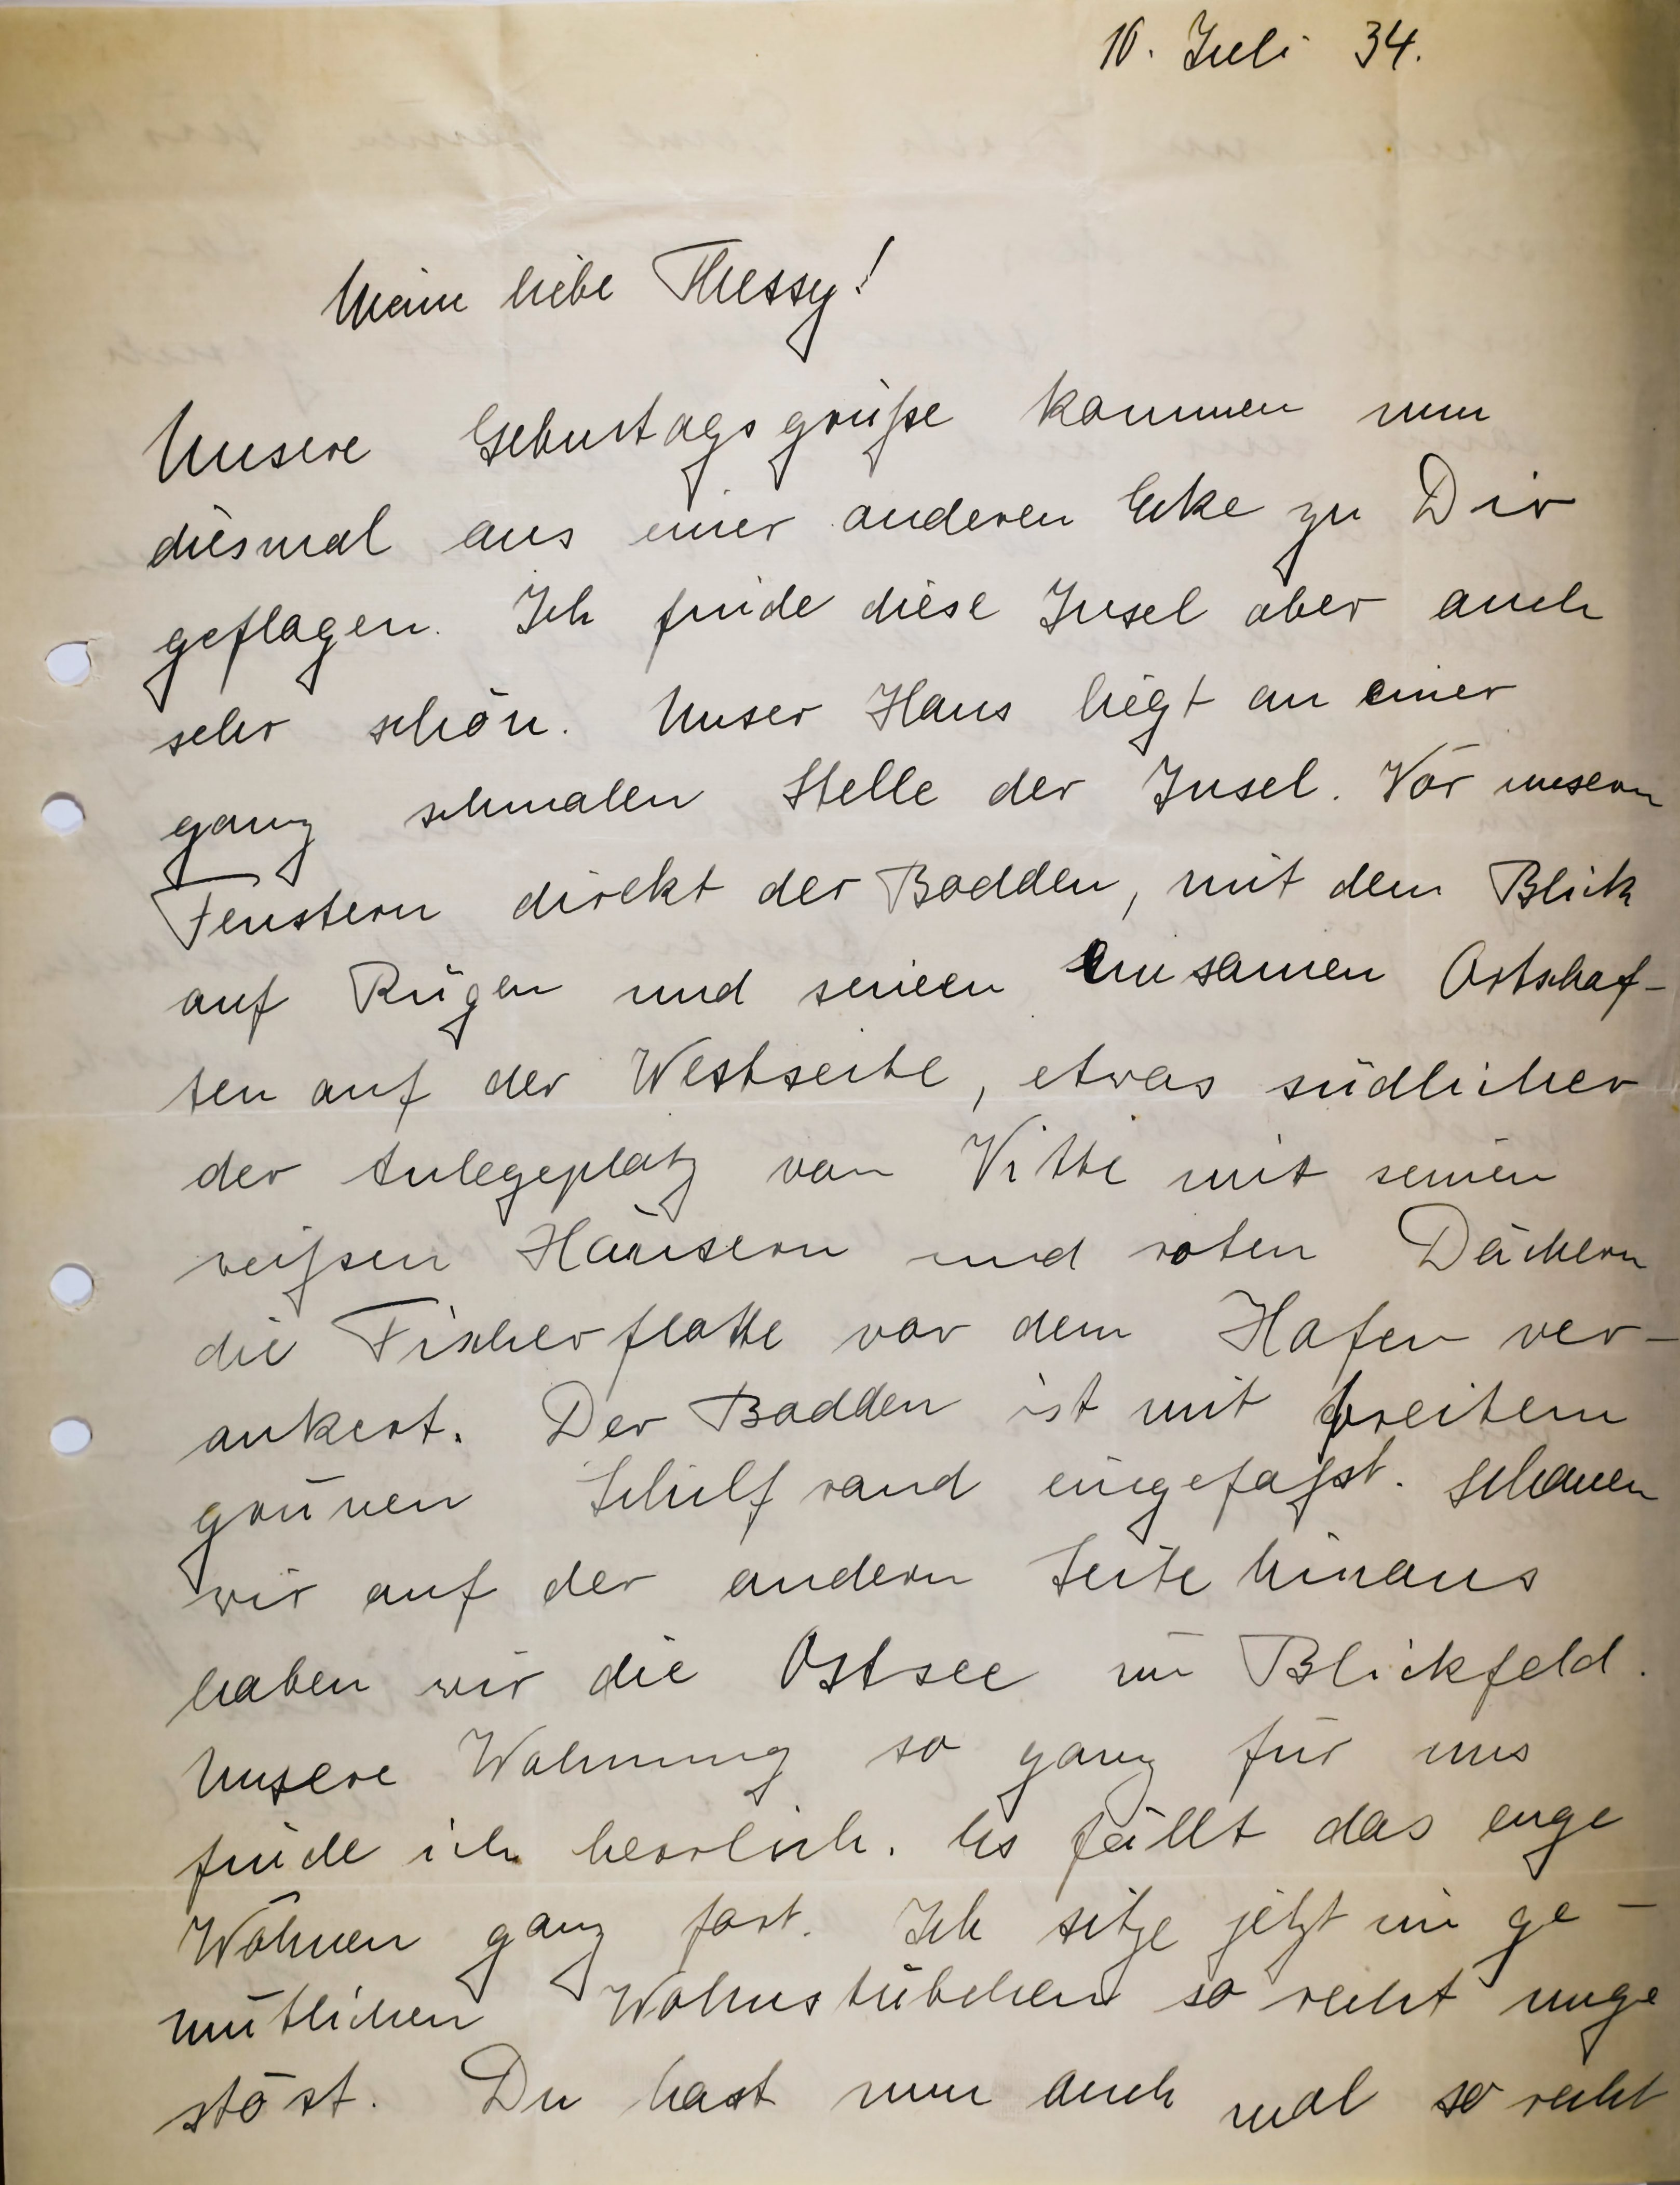 10. Juli 34.
Meine liebe Thessy!
Unsere Geburtagsgrüße kommen nun
diesmal aus einer anderen Ecke zu Dir
geflogen. Ich finde diese Insel aber auch
sehr schön. Unser Haus liegt an einer
ganz schmalen Stelle der Insel. Vor unsern
Fenstern direkt der Bodden, mit dem Blick
auf Rügen und seinen einsamen Ortschaf-
ten auf der Westseite, etwas südlicher
der Anlegeplatz von Vitte mit seinen
weißen Häusern und roten Dächern
die Fischerflotte vor dem Hafen ver-
ankert. Der Bodden ist mit breitem
grünen Schilfrand eingefaßt. Schauen
wir auf der andern Seite hinaus
haben wir die Ostsee im Blickfeld.
Unsere Wohnung so ganz für uns
finde ich herrlich. Es fällt das enge
Wohnen ganz fort. Ich sitze jetzt im ge-
mütlichen Wohnstübchen so recht unge
stöst. Du hast nun auch mal so recht